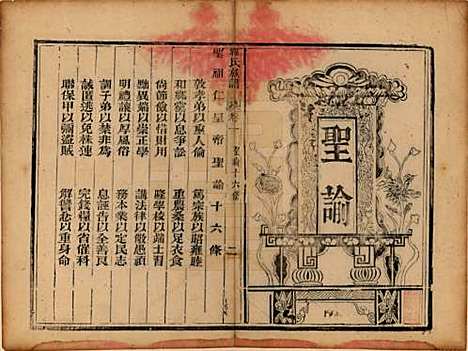 聖諭
氏族譜
聖諭十六條
聖祖仁皇帝聖諭十六條
敦孝弟以重人倫　篤宗族以昭雍睦
和鄉黨以息爭訟　重農桑以足衣食
尚節儉以惜財用　隆學校以端士習
黜異端以崇正學　講法律以儆愚頑
明禮讓以厚風俗　務本業以定民志
訓子弟以禁非爲　息誣告以全善良
誡匿逃以免株連　完錢糧以省催科
聯保甲以弭盜賊　解讐忿以重身命